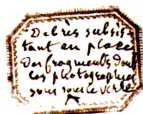 Debris subsis
tant en place
Des fragments dont
les photographies
sous verre